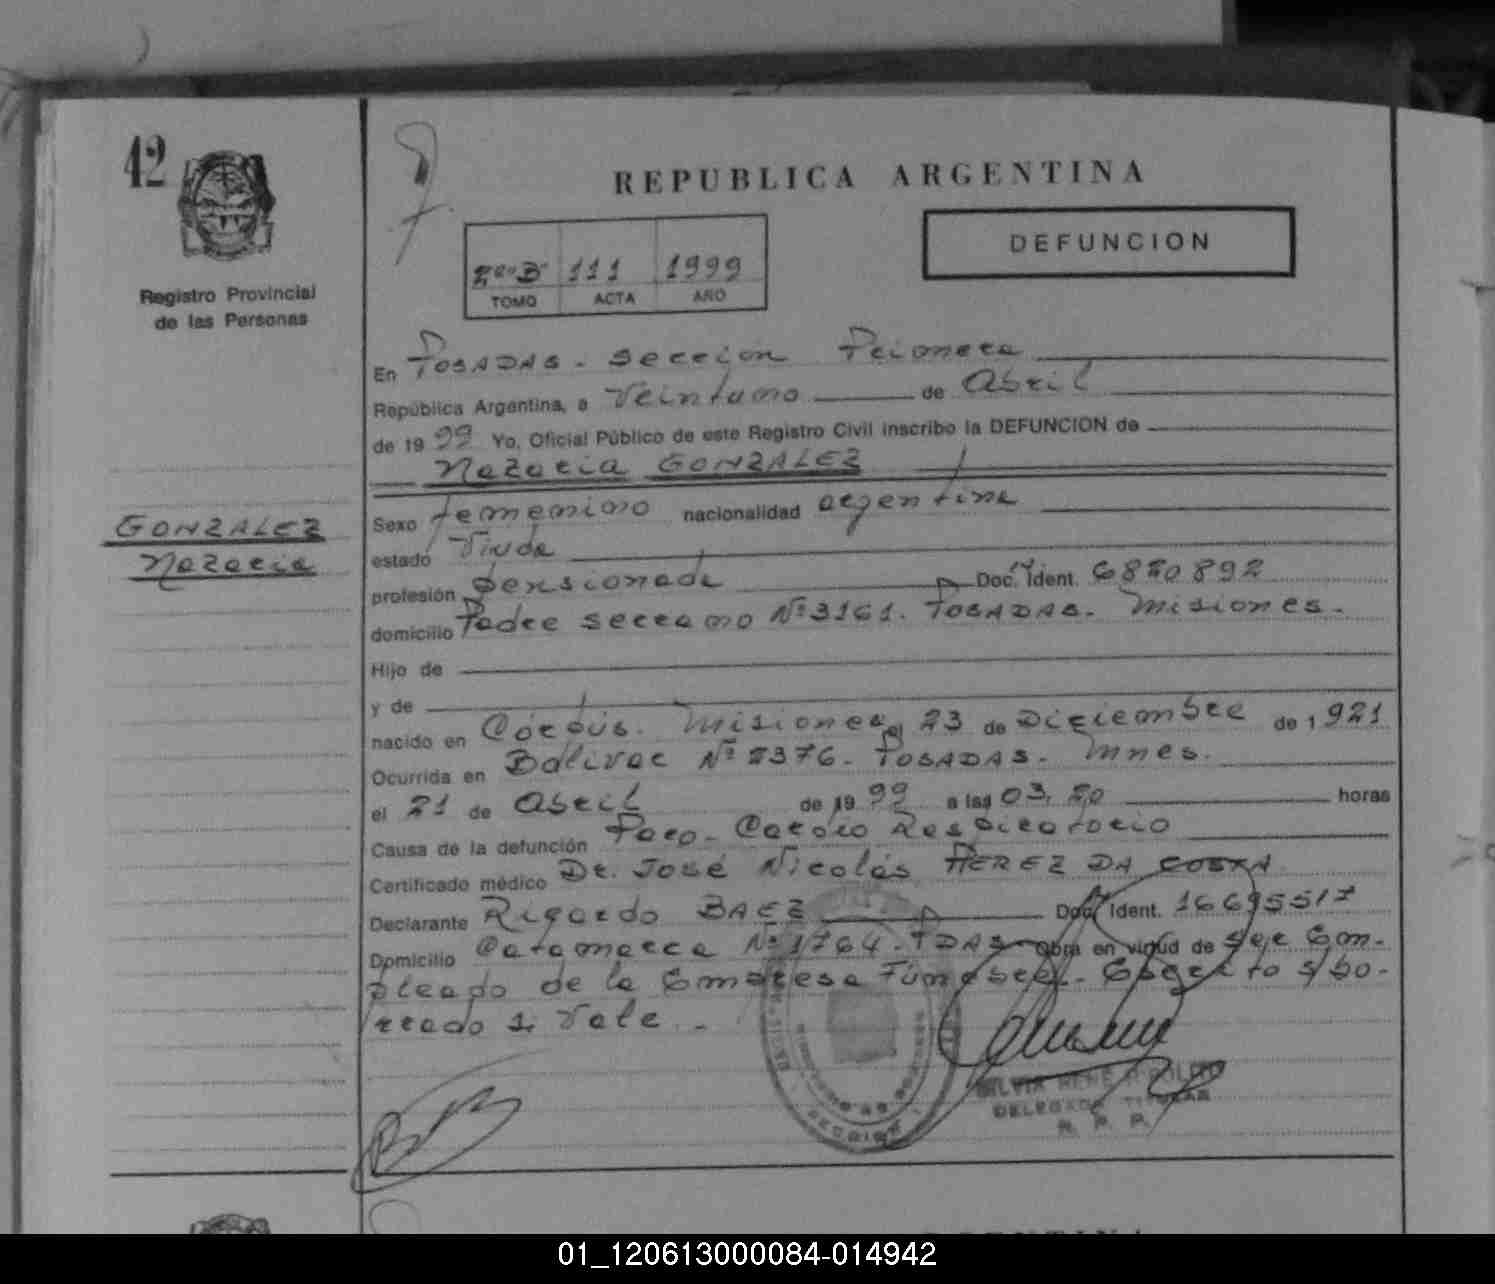 42
REPUBLICA ARGENTINA
DEFUNCION
2do B 111 1999
TOMO ACTA AÑO
Registro Provincial
de las Personas
En POSADAS - Sección Primera
República Argentina, a Veintuno de Abril
de 1999 Yo, Oficial Público de este Registro Civil inscribo la DEFUNCION de
Nazaria GONZALEZ
GONZALEZ
Nazaria
Sexo femenino nacionalidad argentina
estado Viuda
profesión pensionada Doc. Ident. 6820892
domicilio Padre Serrano Nº 3161. POSADAS - Misiones.
Hijo de
y de
nacido en Córpus. Misiones el 23 de Diciembre de 1921
Ocurrida en Bolívar Nº 2376 - POSADAS - Mnes.
el 21 de Abril de 1999 a las 03,20 horas
Causa de la defunción Paro - Cardio Respiratorio
Certificado médico Dr. José Nicolás PEREZ DA COSTA
Declarante Ricardo BAEZ Doc. Ident. 16695517
Domicilio Catamarca Nº 1764 - PDAS - Obra en virtud de ser Em-
pleado de la Empresa Funebre. - Escrito s/bo-
rrado si Vale. -
SILVIA RENE
DELEGADA TITULAR
R. P. P.
01_120613000084-014942